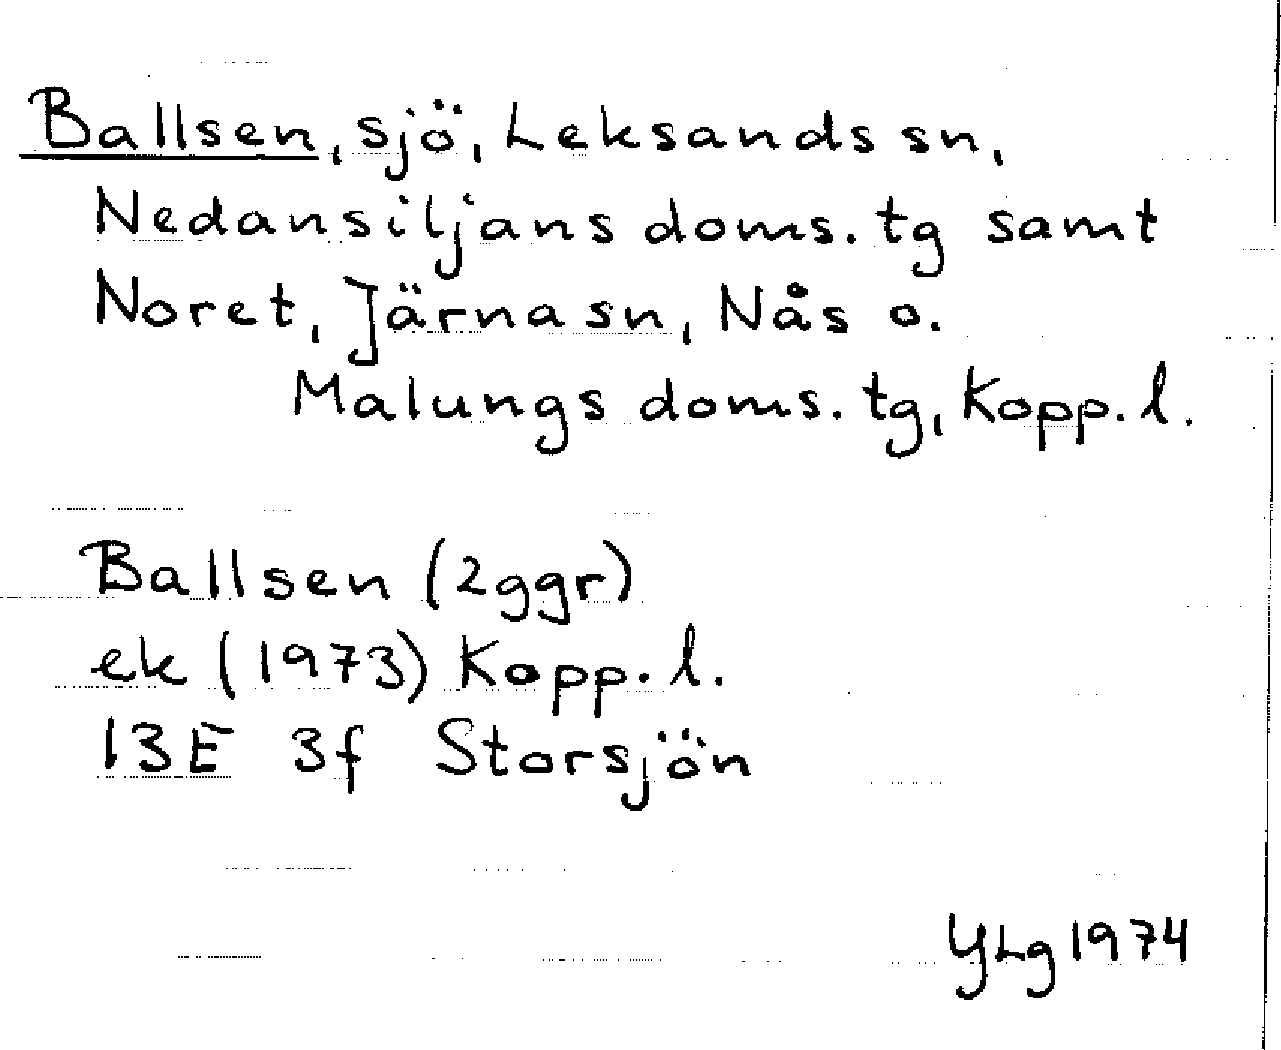 Ballsen, sjö, Leksands sn,
Nedansiljans doms. tg samt
Noret, Järna sn, Nås o.
Malungs doms. tg, Kopp. l.
Ballsen (2ggr)
ek (1973) Kopp. l.
13E 3f Storsjön
YLg 1974